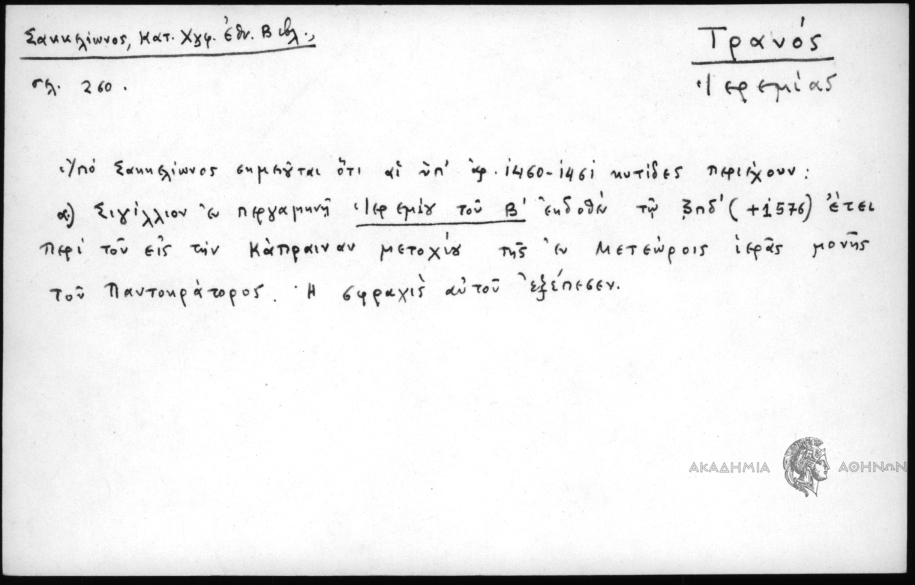 Σακκελίωνος, Κατ. Χγφ. Ἐθν. Βιβλ.,
Τρανός
Ἱερεμίας
σελ. 260.
Ὑπό Σακκελίωνος σημειοῦται ὅτι αἱ ὑπ' ἀρ. 1460-1461 κυτίδες περιέχουν:
α) Σιγίλλιον ἐν περγαμηνῇ Ἱερεμίου τοῦ Β' ἐκδοθέν τῷ ζπδ' (+1576) ἔτει
περί τοῦ εἰς τήν Κάπραιναν μετοχίου τῆς ἐν Μετεώροις ἱερᾶς μονῆς
τοῦ Παντοκράτορος. Ἡ σφραγίς αὐτοῦ ἐξέπεσεν.
ΑΚΑΔΗΜΙΑ ΑΘΗΝΩΝ